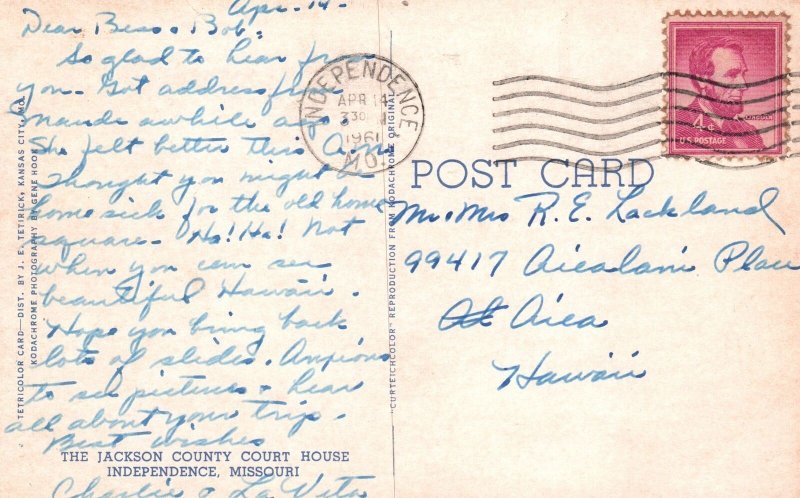 Apr. 14 -
Dear Bess & Bob,
So glad to hear from
you. Got address from
Maude awhile ago.
She felt better this A.M.
Thought you might be
home sick for the old home
square - Ha! Ha! Not
when you can see
beautiful Hawaii.
Hope you bring back
lots of slides. Anxious
to see pictures & hear
all about your trip.
Best wishes
Charlie & La Veta
THE JACKSON COUNTY COURT HOUSE
INDEPENDENCE, MISSOURI
TETRICOLOR CARD—DIST. BY J. E. TETIRICK, KANSAS CITY, MO.
KODACHROME PHOTOGRAPHY BY GENE HOOK
"CURTEICHCOLOR" REPRODUCTION FROM KODACHROME ORIGINAL
INDEPENDENCE,
APR 14
330
1961
MO.
LINCOLN
4¢
U.S. POSTAGE
POST CARD
Mr. Mrs R. E. Lackland
99417 Aiealani Place
At Aiea
Hawaii